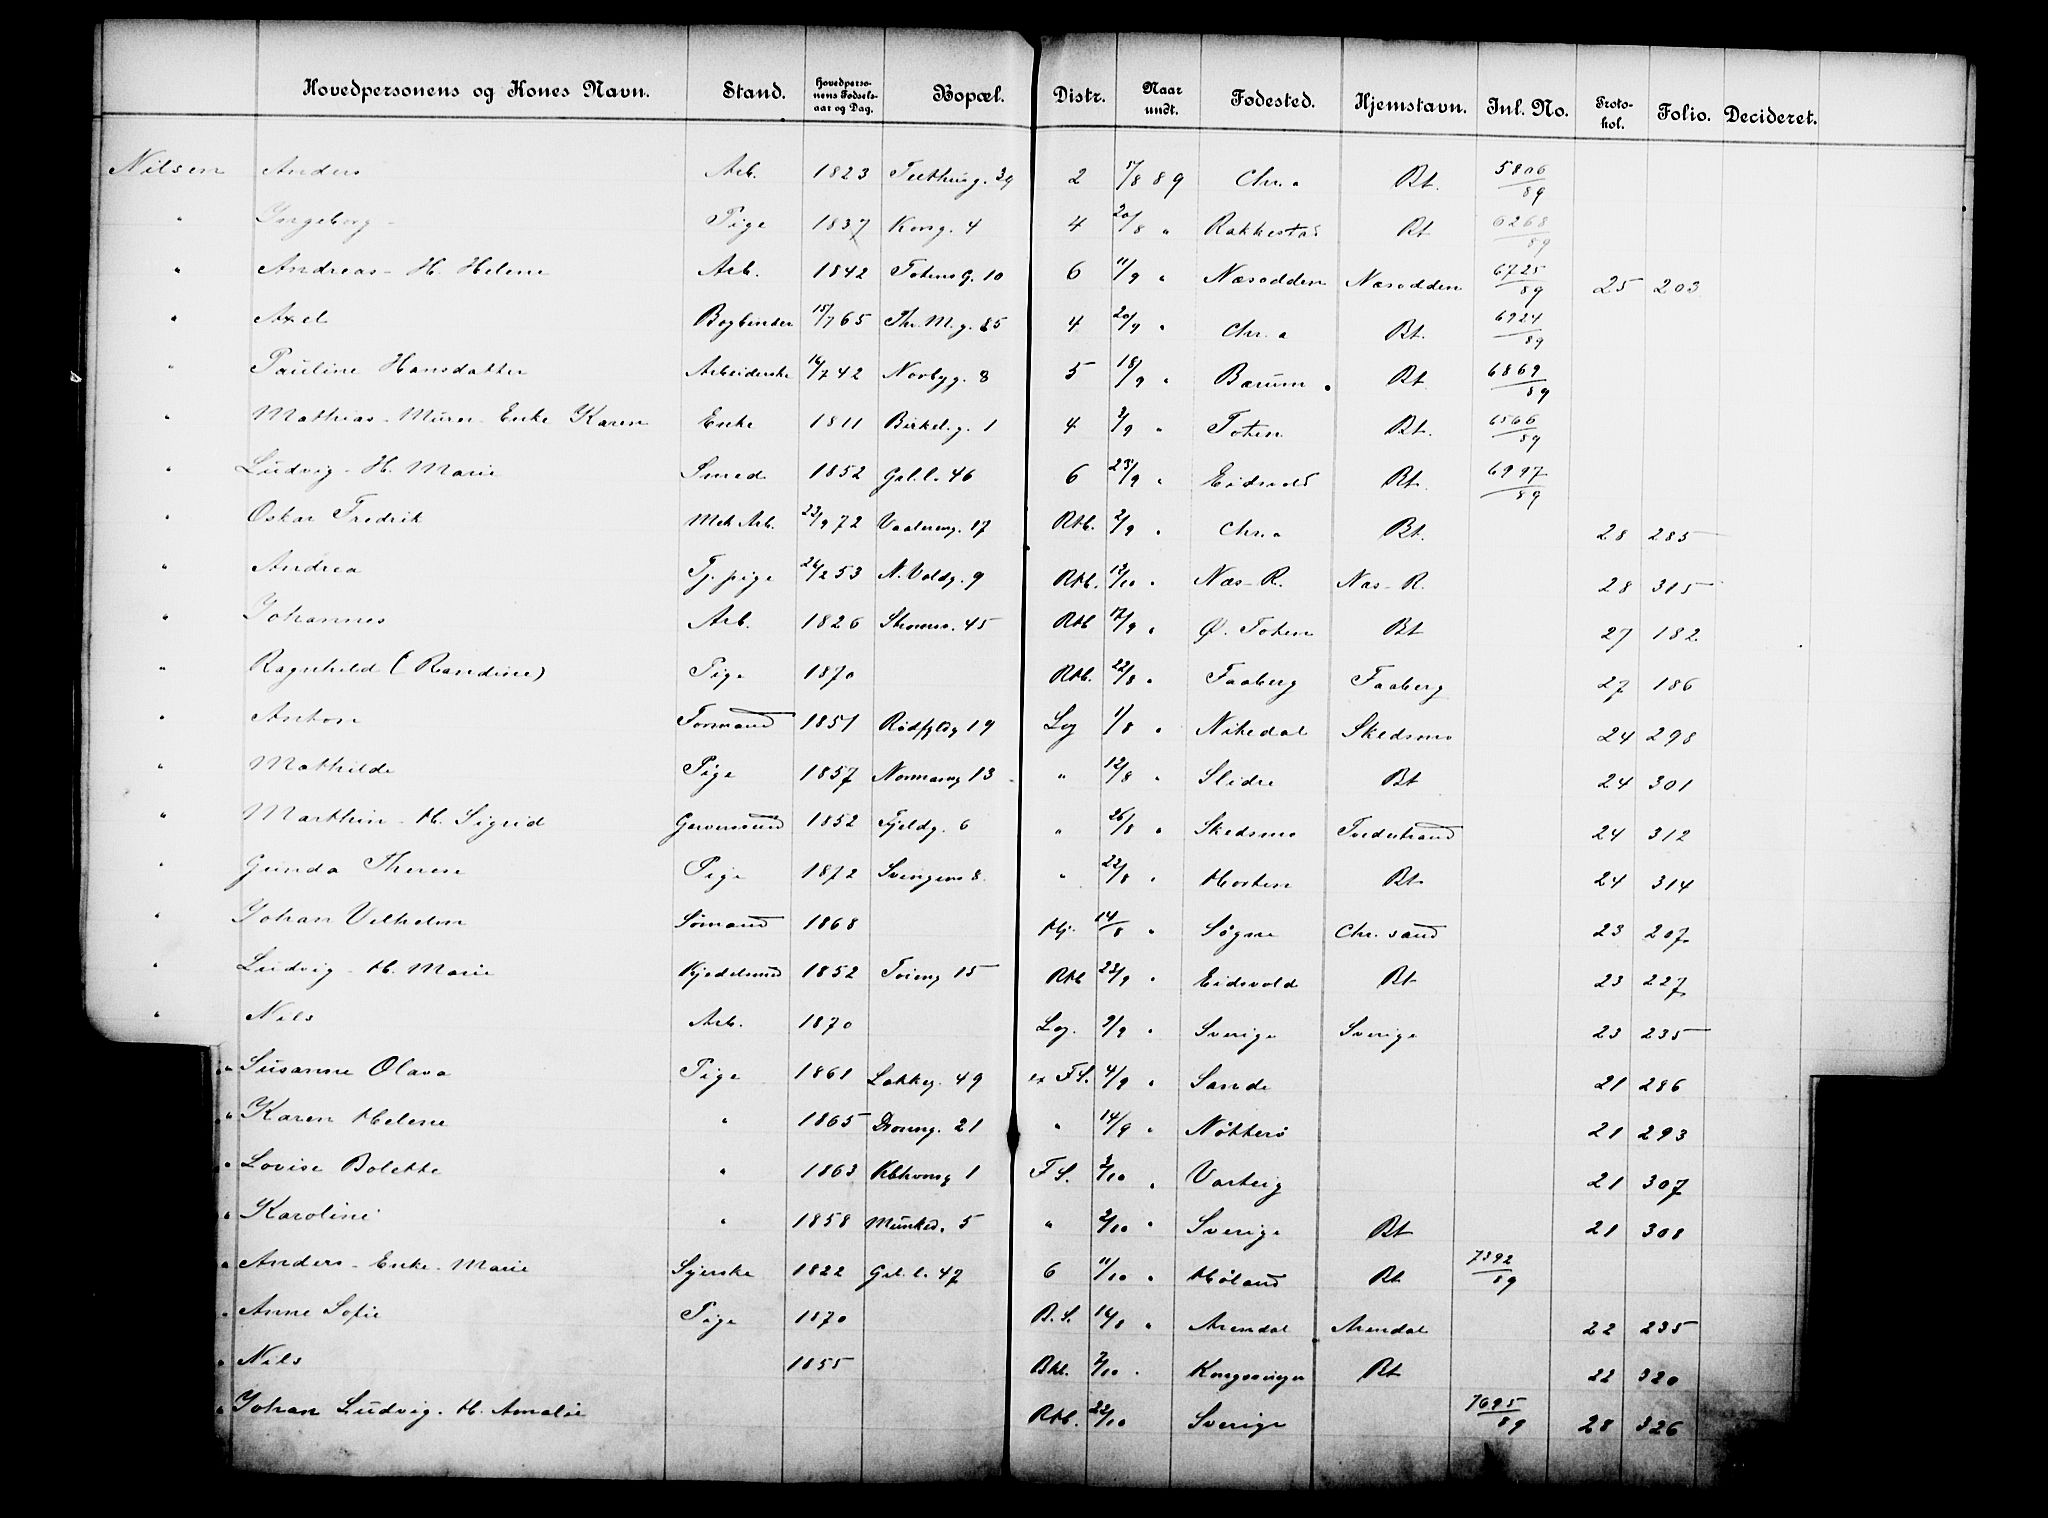 Hovedpersonens og Kones Navn. Stand. Hovedpersonens Fødselsaar og Dag. Bopæl. Distr. Naar undt. Fødested. Hjemstavn. Inl. No. Protokol. Folio. Decideret.
Nilsen Anders Arb. 1823 39 2 /8 89 Chr.a Bt. 5806/89
" Ingeborg Pige 1837 Kong. 4 4 20/8 " Rakkestad Bt 6268/89
" Andreas - H. Helene Arb. 1842 Totens G. 10 6 11/9 " Næsodden Næsodden 6725/89 25 203
" Axel Bogbinder 15/7 65 Thr. M. g. 85 4 20/9 " Chr.a Bt. 6924/89
" Pauline Hansdatter Arbeiderske 16/7 42 Norbyg. 8 5 18/9 " Bærum Bt. 6869/89
" Mathias - Murer - Enke Karen Enke 1811 Birkel.g. 1 4 3/9 " Toten Bt. 6566/89
" Ludvig - H. Marie Smed 1852 Grl.l. 46 6 23/9 " Eidsvold Bt. 6997/89
" Oskar Fredrik Mek Arb. 22/9 72 Vaalereng. 17 Rtb. 2/9 " Chr.a Bt. 28 285
" Andrea Tj. pige 26/2 53 N. Voldg. 9 Rtb. 12/10 " Næs - R. Næs - R. 28 315
" Johannes Arb. 1826 Strømsv. 45 Rtb 17/9 " Ø. Toten Bt 27 182
" Ragnhild (Randine) Pige 1870 Rtb. 22/8 " Faaberg Faaberg 27 186
" Anton Formand 1851 Rødfyldg 19 Lg 1/8 " Nitedal Skedsmo 24 298
" Mathilde Pige 1857 Normanng 13 " 12/8 " Slidre Bt 24 301
" Marthin - H. Sigrid Garversvend 1852 Fjeldg. 6 " 26/8 " Skedsmo 24 312
" Gunda Therese Pige 1872 Svingen 8 " 22/8 " Horten Bt 24 314
" Johan Vilhelm Sømand 1868 Hj. 14/8 " Søgne Chr. sand 23 207
" Ludvig - H. Marie Kjedelsmed 1852 Toieng 15 Rtb 23/9 " Eidsvold Bt 23 227
" Nils Arb. 1870 Lg. 9/9 " Sverige Sverige 23 235
" Susanne Olava Pige 1861 Løkkeg. 49 ex F.S. 4/9 " Sande 21 286
" Karen Helene " 1865 Dronng. 21 " 14/9 " Nøtterø 21 293
" Lovise Bolette " 1863 1 F S. 3/10 " Varteig 21 307
" Karoline " 1858 Munked. 5 " 2/10 " Sverige Bt 21 308
" Anders - Enke - Marie Syerske 1822 Grl.l. 47 6 11/10 " Høland Bt 7392/89
" Anne Sofie Pige 1870 B. S. 16/8 " Arendal Arendal 22 235
" Nils 1855 Bkl. 7/10 " Kongsvinger Bt 22 320
" Johan Ludvig - H. Amalie Rtb. 22/10 Sverige 7695/89 28 326